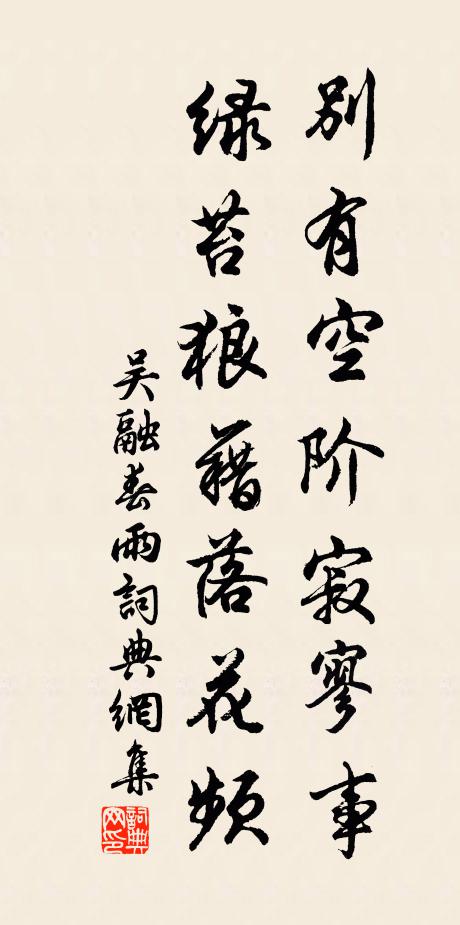 别有空阶寂寥事
绿苔狼藉落花频
吴融春雨詞典網集
詞典网印